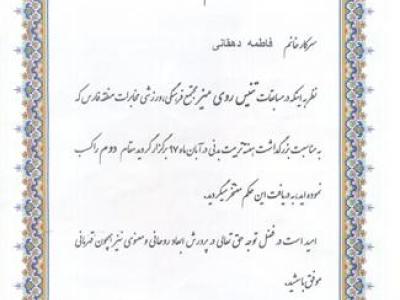 سرکار خانم فاطمه دهقانی
نظر به اینکه در مسابقات تنیس روی میز مجتمع فرهنگی، ورزشی مخابرات منطقه فارس که
به مناسبت بزرگداشت هفته تربیت بدنی در آبان ماه ۹۷ برگزار گردید مقام دوم را کسب
نموده اید، به دریافت این حکم مفتخر میگردید.
امید است در فضل توجه حق تعالی در پرورش ابعاد روحانی و معنوی نیز همچون قهرمانی
موفق باشید.